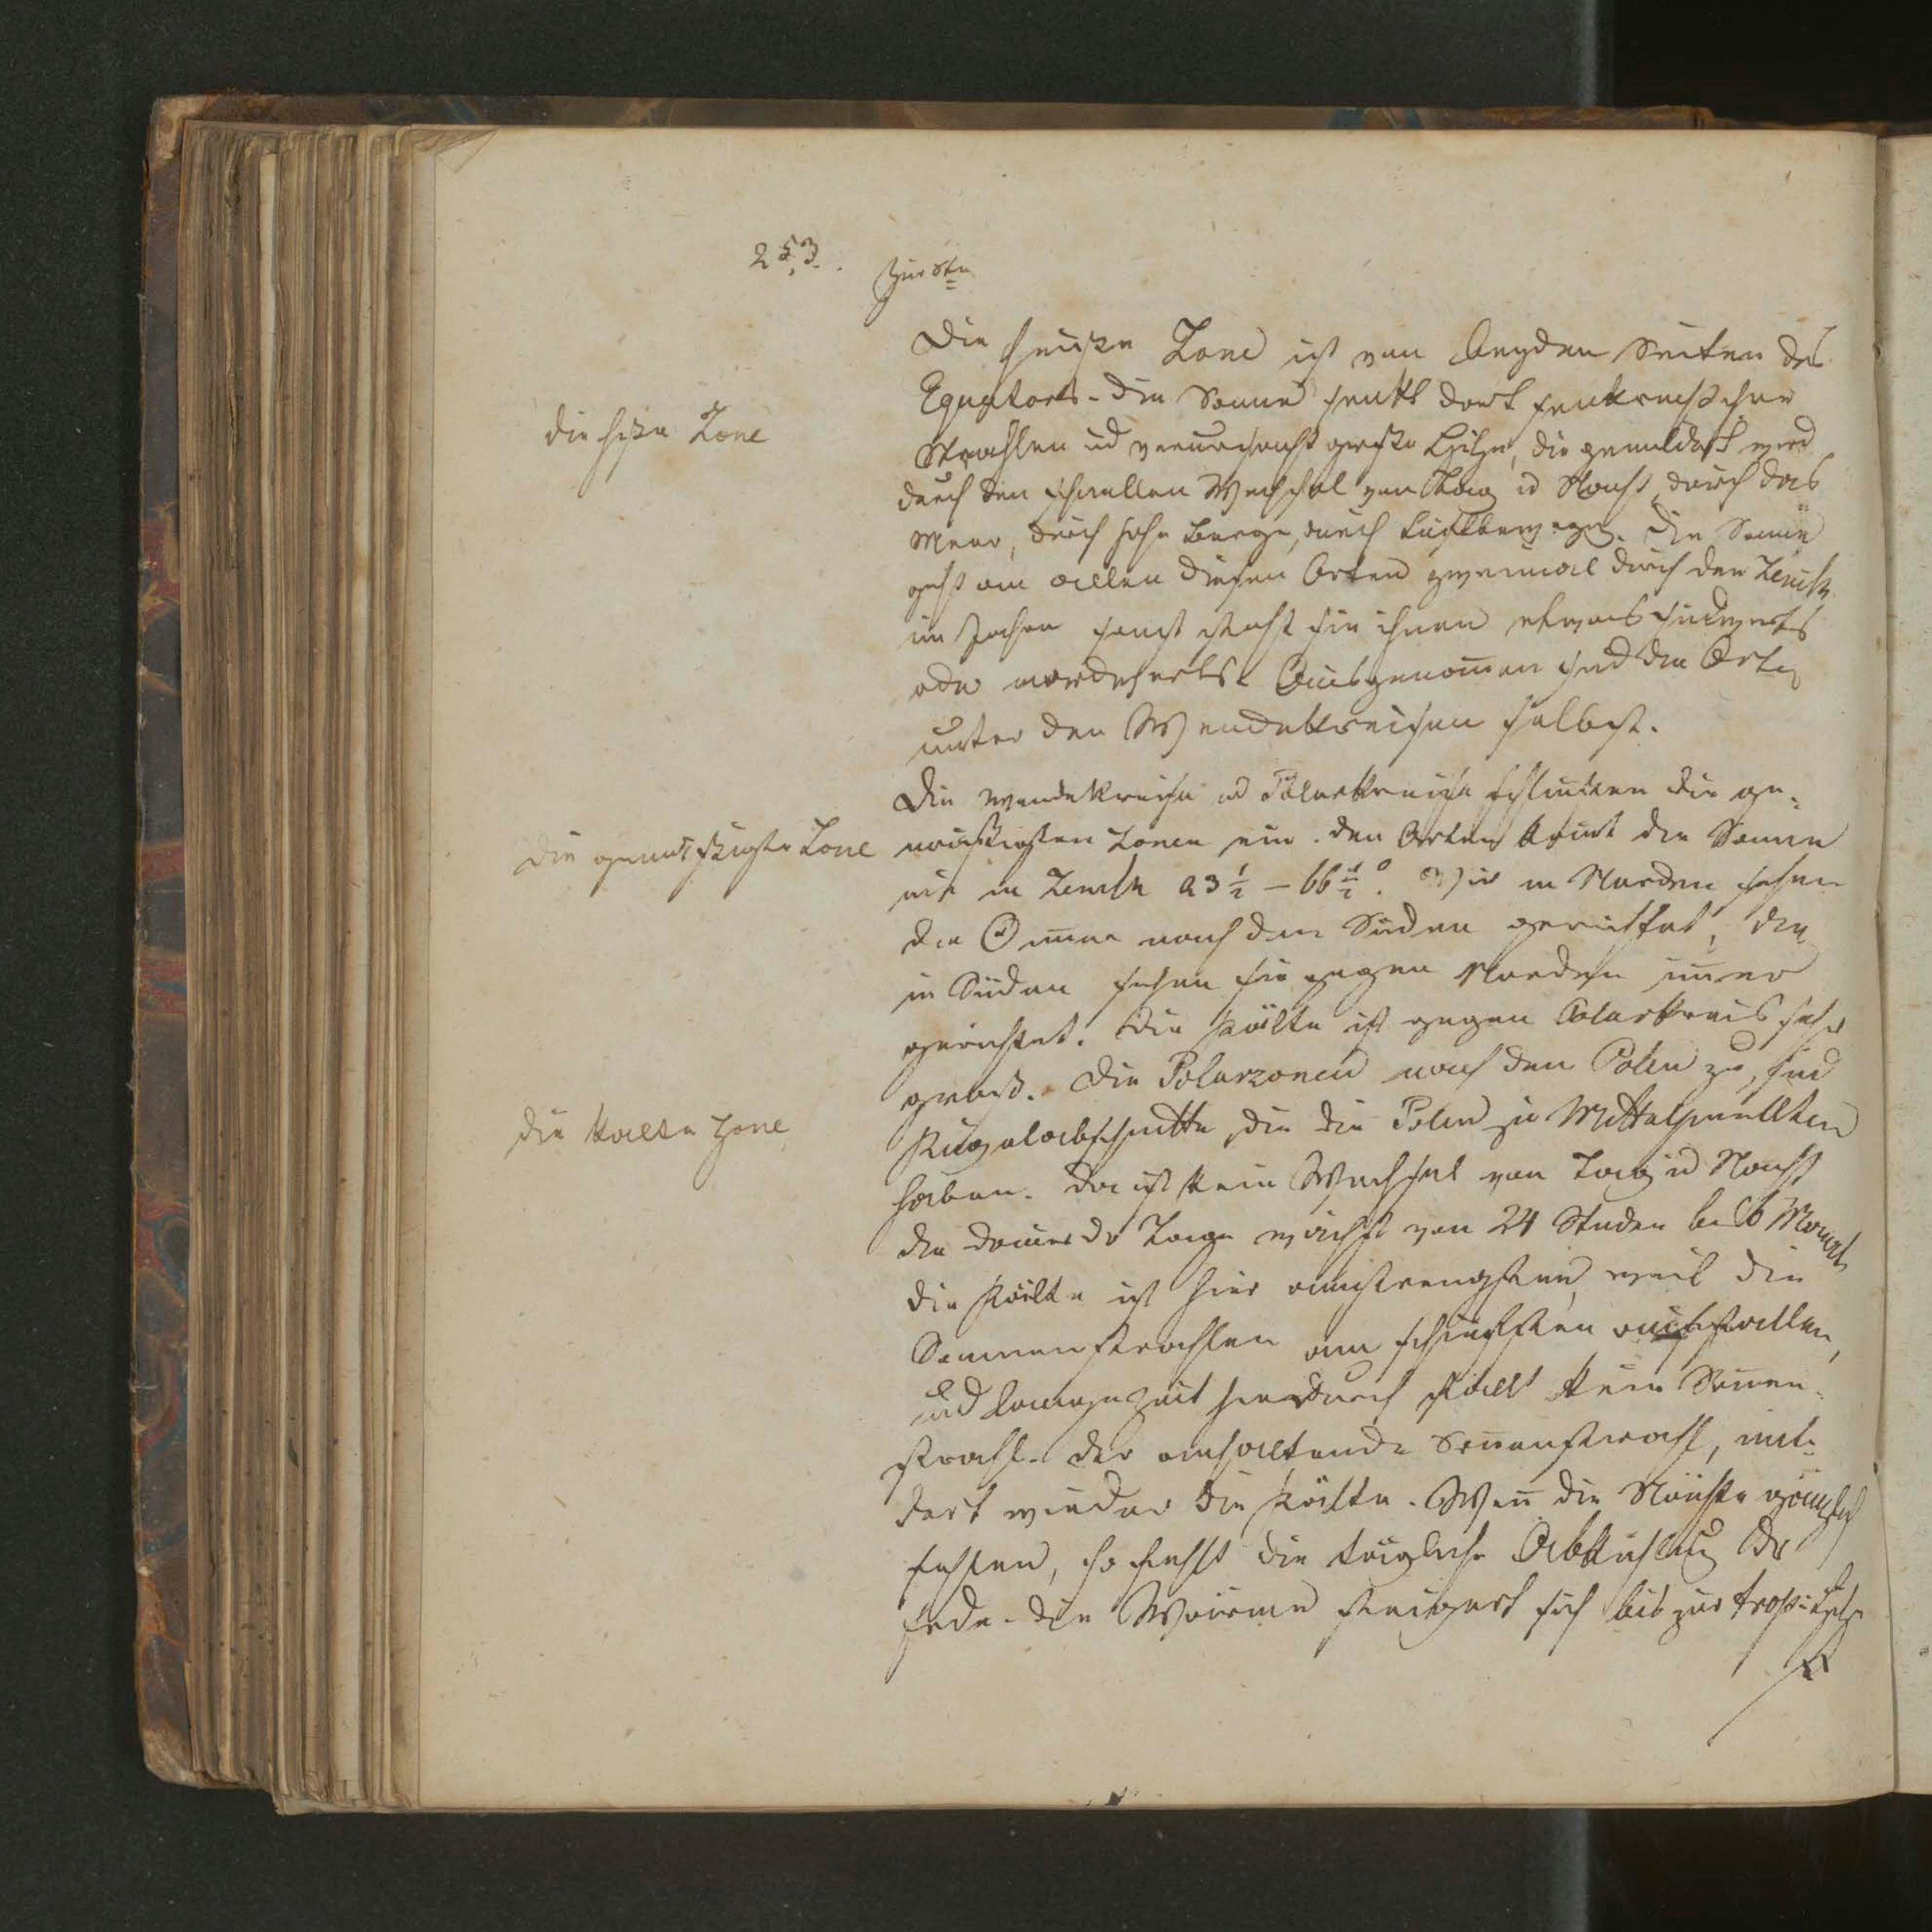 253.
die heiße Zone
Die heiße Zone ist von beyden Seiten des
Equators. Die Sonne senkt dort senkrecht ihre
Strahlen und verursacht große Hitze, die gemildert wird
durch den schnellen Wechsel von Tag u Nacht, durch das
Meer, durch hohe Berge, durch Luftbeweg. Die Sonne
geht an allen diesen Orten zweimal durch den Zenith
im Jahre sonst steht sie ihnen etwas südwerts
oder nordwerts. Ausgenommen sind die Orte
unter den Wendekreisen selbst.
die gemäßigte Zone
Die Wendekreise und Polarkreise schließen die ge-
mäßigten Zonen ein. den Orten kommt die Sonne
nie in Zenith 23 1/2 – 66 1/2°. Wir in Norden sehen
die Sonne nach dem Süden gerichtet, die
in Süden sehen sie gegen Norden immer
gerichtet. Die Kälte ist gegen Polarkreis sehr
die kalte Zone
groß. Die Polarzonen nach den Polen zu, sind
Kugelabschnitte, die die Polen zu Mittelpunkten
haben. Da ist kein Wechsel von Tag u Nacht
die Dauer der Tage wächst von 24 Stunden bis 6 Monath
die Kälte ist hier am strengsten, weil die
Sonnenstrahlen am schiefsten auffallen,
und lange Zeit hindurch fällt kein Sonnen-
strahl. Der anhaltende Sonnenstrahl, mil-
dert wieder die Kälte. Wenn die Nächte gänzlich
fehlen, so fehlt die tägliche Abkühlung der
Erde. Die Wärme steigert sich bis zur tropischen